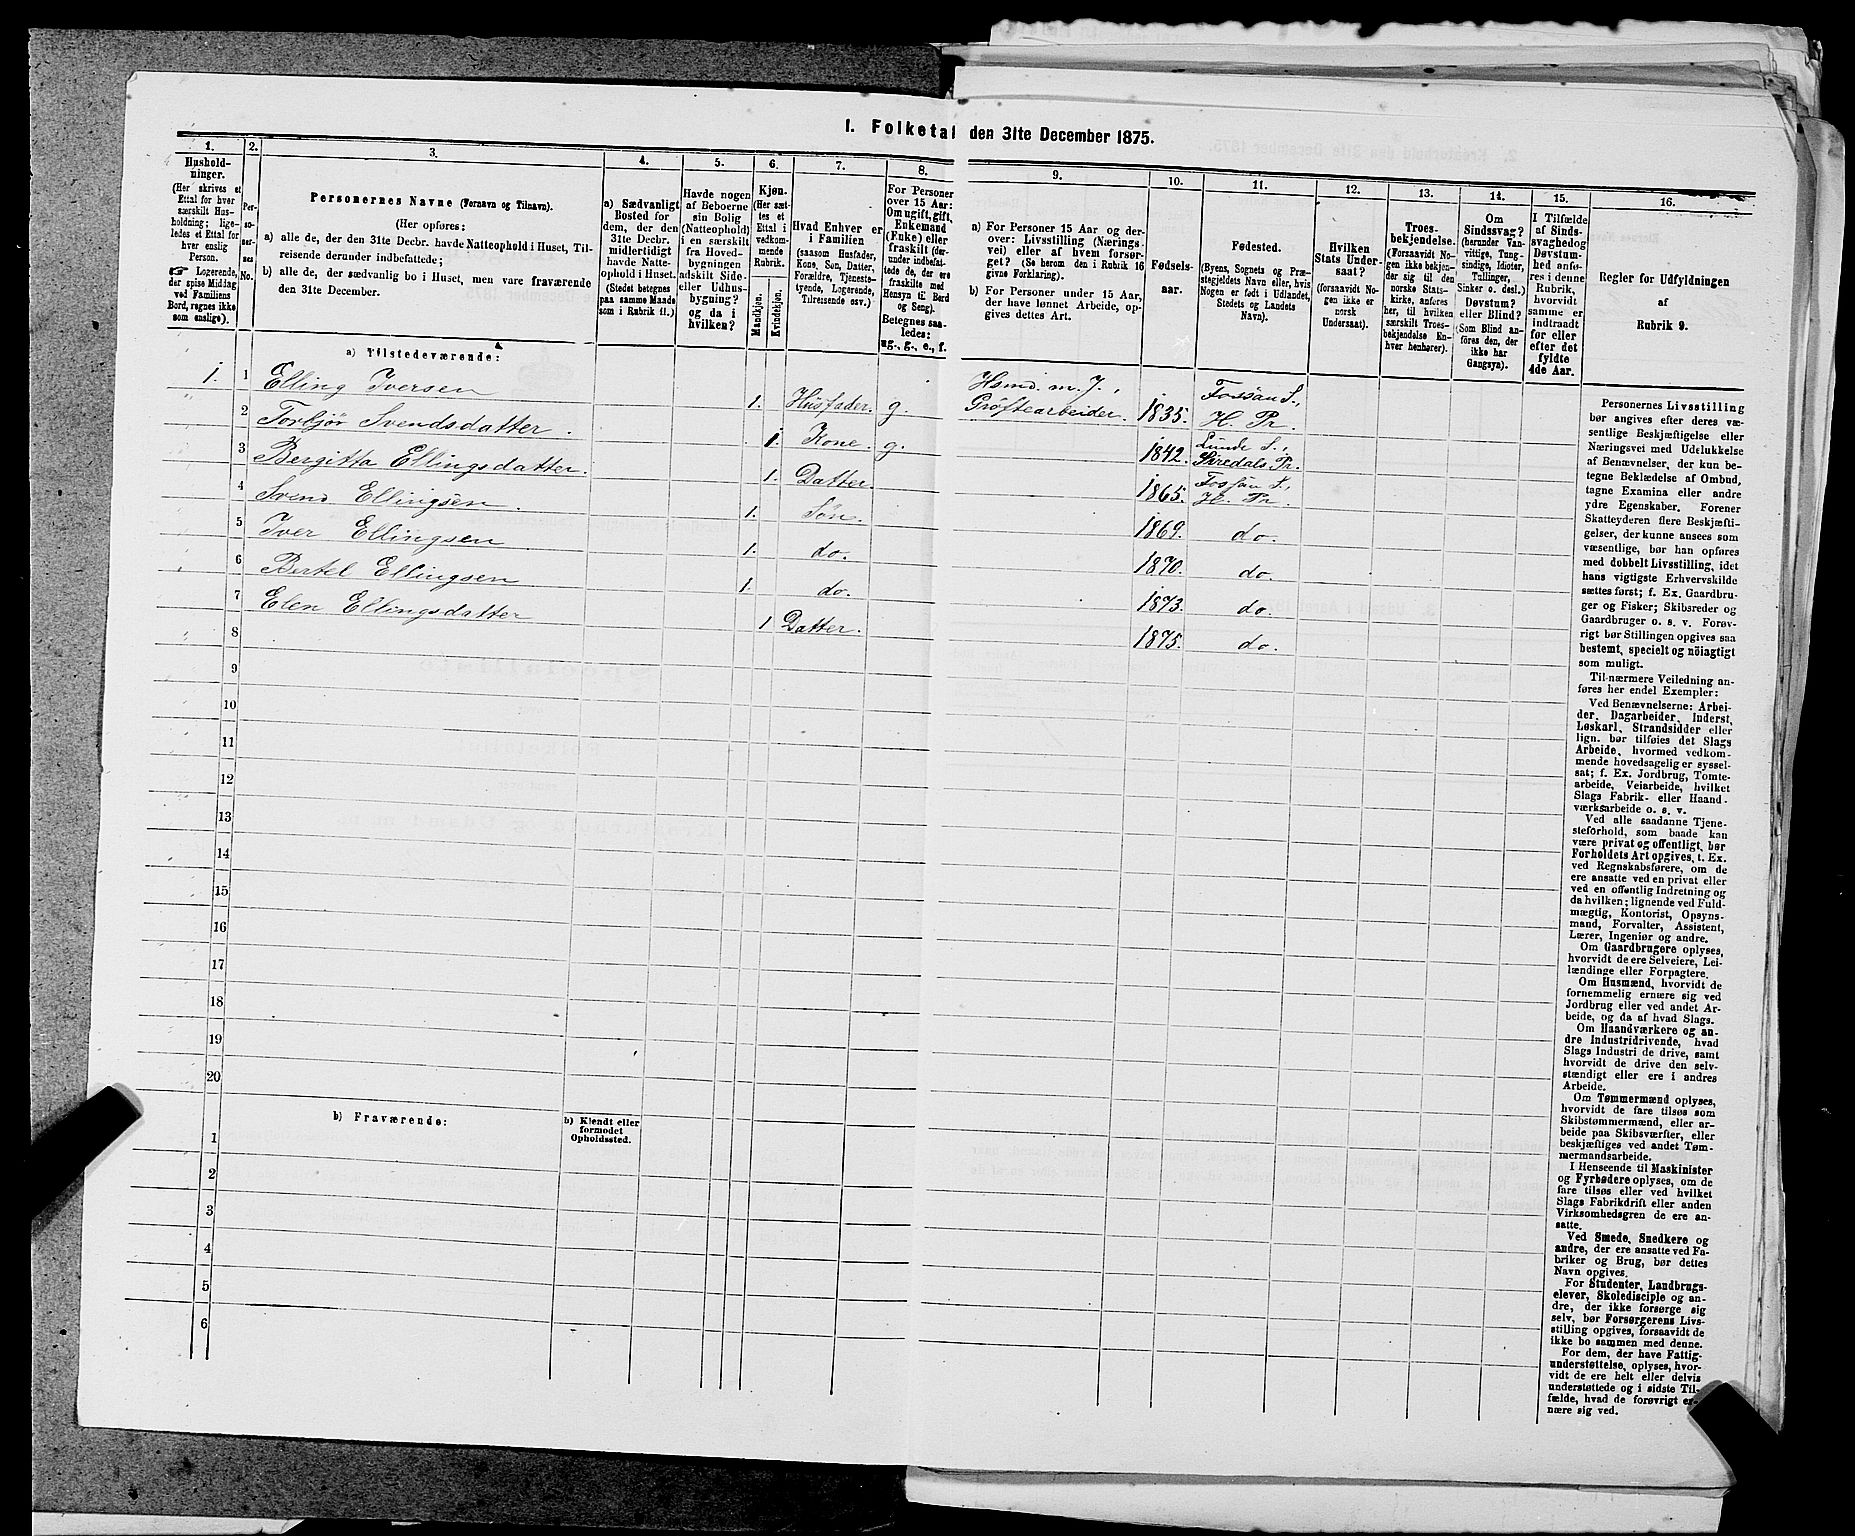 1. Folketal den 31te December 1875.
1.
Hushold-
ninger.
(Her skrives et
Ettal for hver
særskilt Hus-
holdning; lige-
ledes et Ettal for
hver enslig
Person.
☛ Logerende,
der spise Middag
ved Familiens
Bord, regnes ikke
som enslige).
2.
Per-
so-
ner-
nes
No.
3.
Personernes Navne (Fornavn og Tilnavn).
(Her opføres:
a) alle de, der den 31te Decbr. havde Natteophold i Huset, Til-
reisende derunder indbefattede;
b) alle de, der sædvanlig bo i Huset, men vare fraværende
den 31te December.
4.
a) Sædvanligt
Bosted for
dem, der den
31te Decbr.
midlertidigt
havde Natte-
ophold i Huset.
(Stedet betegnes
paa samme Maade
som i Rubrik 11.)
5.
Havde nogen
af Beboerne
sin Bolig
(Natteophold)
i en særskilt
fra Hoved-
bygningen
adskilt Side-
eller Udhus-
bygning?
og da i
hvilken?
6.
Kjøn.
(Her sæt-
tes et
Ettal i
vedkom-
mende
Rubrik.
Mandkjøn.
Kvindekjøn.
7.
Hvad Enhver er
i Familien
(saasom Husfader,
Kone, Søn, Datter,
Forældre, Tjeneste-
tyende, Logerende,
Tilreisende osv.)
8.
For Personer
over 15 Aar:
Om ugift, gift,
Enkemand
(Enke) eller
fraskilt (der-
under indbefat-
tede de, der ere
fraskilte med
Hensyn til Bord
og Seng).
Betegnes saa-
ledes:
ug., g., e., f.
9.
a) For Personer 15 Aar og der-
over: Livsstilling (Nærings-
vei) eller af hvem forsør-
get? (Se herom den i Rubrik 16
givne Forklaring).
b) For Personer under 15 Aar,
der have lønnet Arbeide, op-
gives dettes Art.
10.
Fødsels-
aar.
11.
Fødested.
(Byens, Sognets og Præ-
stegjeldets Navn eller, hvis
Nogen er født i Udlandet,
Stedets og Landets
Navn).
12.
Hvilken
Stats Under-
saat?
(forsaavidt No-
gen ikke er
norsk
Undersaat).
13.
Troes-
bekjendelse.
(Forsaavidt No-
gen ikke bekjen-
der sig til den
norske Stats-
kirke, anføres
her, til hvilken
særskilt Troes-
bekjendelse En-
hver henhører).
14.
Om
Sindssvag?
(herunder Van-
vittige, Tung-
sindige, Idioter,
Tullinger,
Sinker o. desl.)
Døvstum?
eller Blind?
(Som Blind an-
føres den, der
ikke har
Gangsyn).
15.
I Tilfælde
af Sinds-
svaghed og
Døvstum-
hed anfø-
res i denne
Rubrik,
hvorvidt
samme er
indtraadt
før eller
efter det
fyldte
4de Aar.
16.
Regler for Udfyldningen
af
Rubrik 9.
a) Tilstedeværende:
1. 1 Elling Iversen 1. Husfader. g. Hsmd. m. J., Grøftearbeider. 1835. Fossan S., H. Pr.
2 Torbjør Svendsdatter. 1. Kone. g. 1842. Lunde S., Siredals Pr.
3 Bergitta Ellingsdatter. 1. Datter. 1865. Fossan S., H. Pr.
4 Svend Ellingsen. 1. Søn. 1869. do.
5 Iver Ellingsen 1. do. 1870. do.
6 Bertel Ellingsen 1. do. 1873. do.
7 Elen Ellingsdatter 1 Datter. 1875. do.
8
9
10
11
12
13
14
15
16
17
18
19
20
b) Fraværende:
b) Kjendt eller
formodet
Opholdssted.
1
2
3
4
5
6
Personernes Livsstilling
bør angives efter deres væ-
sentlige Beskjæftigelse eller
Næringsvei med Udelukkelse
af Benævnelser, der kun be-
tegne Beklædelse af Ombud,
tagne Examina eller andre
ydre Egenskaber. Forener
Skatteyderen flere Beskjæfti-
gelser, der kunne ansees som
væsentlige, bør han opføres
med dobbelt Livsstilling, idet
hans vigtigste Erhvervskilde
sættes først; f. Ex. Gaardbru-
ger og Fisker; Skibsreder og
Gaardbruger o. s. v. Forøv-
rigt bør Stillingen opgives saa
bestemt, specielt og nöiagtigt
som muligt.
Til nærmere Veiledning an-
føres her endel Exempler:
Ved Benævnelserne: Arbei-
der, Dagarbeider, Inderst,
Løskarl, Strandsidder eller
lign. bør tilføies det Slags
Arbeide, hvormed vedkom-
mende hovedsagelig er syssel-
sat; f. Ex. Jordbrug, Tomte-
arbeide, Veiarbeide, hvilket
Slags Fabrik- eller Haand-
værksarbeide o. s. v.
Ved alle saadanne Tjene-
steforhold, som baade kan
være privat og offentligt, bør
Forholdets Art opgives, t. Ex.
ved Regnskabsførere, om de
ere ansatte ved en privat eller
ved en offentlig Indretning og
da hvilken; lignende ved Fuld-
mægtig, Kontorist, Opsyns-
mand, Forvalter, Assistent,
Lærer, Ingeniør og andre.
Om Gaardbrugere oplyses,
hvorvidt de ere Selveiere, Lei-
lændinge eller Forpagtere.
Om Husmænd, hvorvidt de
fornemmelig ernære sig ved
Jordbrug eller ved andet Ar-
beide, og da af hvad Slags.
Om Haandværkere og an-
dre Industridrivende, hvad
Slags Industri de drive, samt
hvorvidt de drive den selv-
stændigt eller ere i andres
Arbeide.
Om Tømmermænd oplyses,
hvorvidt de fare tilsøs som
Skibstømmermænd, eller ar-
beide paa Skibsværfter, eller
beskjæftiges ved andet Tøm-
mermandsarbeide.
I Henseende til Maskinister
og Fyrbødere oplyses, om de
fare tilsøs eller ved hvilket
Slags Fabrikdrift eller anden
Virksomhedsgren de ere an-
satte.
Ved Smede, Snedkere og
andre, der ere ansatte ved Fa-
briker og Brug, bør dettes
Navn opgives.
For Studenter, Landbrugs-
elever, Skoledisciple og an-
dre, der ikke forsørge sig
selv, bør Forsørgerens Livs-
stilling opgives, forsaavidt de
ikke bo sammen med denne.
For dem, der have Fattig-
understøttelse, oplyses, hvor-
vidt de ere helt eller delvis
understøttede og i sidste Til-
fælde, hvad de forøvrigt er-
nære sig ved.